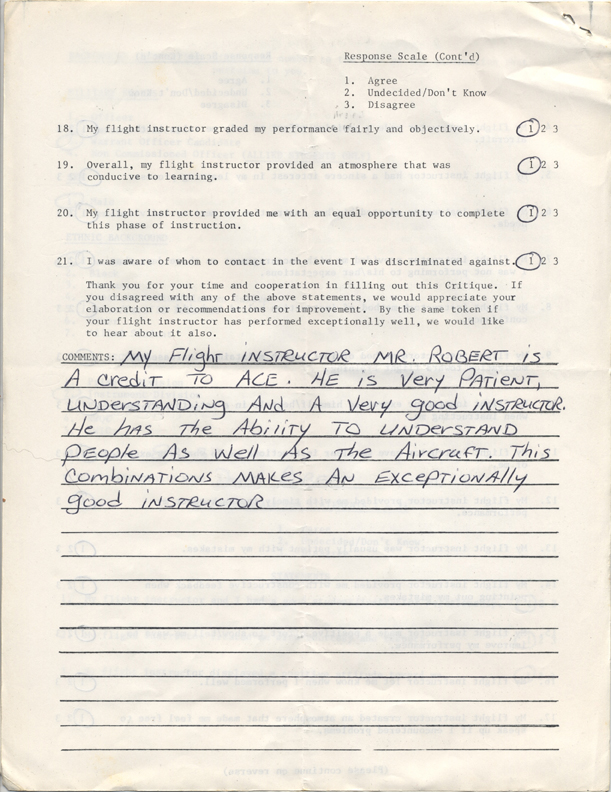 Response Scale (Cont'd)
1. Agree
2. Undecided/Don't Know
3. Disagree
18. My flight instructor graded my performance fairly and objectively. 1 2 3
19. Overall, my flight instructor provided an atmosphere that was 1 2 3
conducive to learning.
20. My flight instructor provided me with an equal opportunity to complete 1 2 3
this phase of instruction.
21. I was aware of whom to contact in the event I was discriminated against. 1 2 3
Thank you for your time and cooperation in filling out this Critique. If
you disagreed with any of the above statements, we would appreciate your
elaboration or recommendations for improvement. By the same token if
your flight instructor has performed exceptionally well, we would like
to hear about it also.
COMMENTS: My Flight INSTRUCTOR MR. ROBERT is
A credit TO ACE. HE is Very PATIENT,
UNDERSTANDing And A Very good INSTRUCTOR.
He has The Ability TO UNDERSTAND
People As Well As The Aircraft. This
Combinations MAKES AN Exceptionally
good INSTRUCTOR